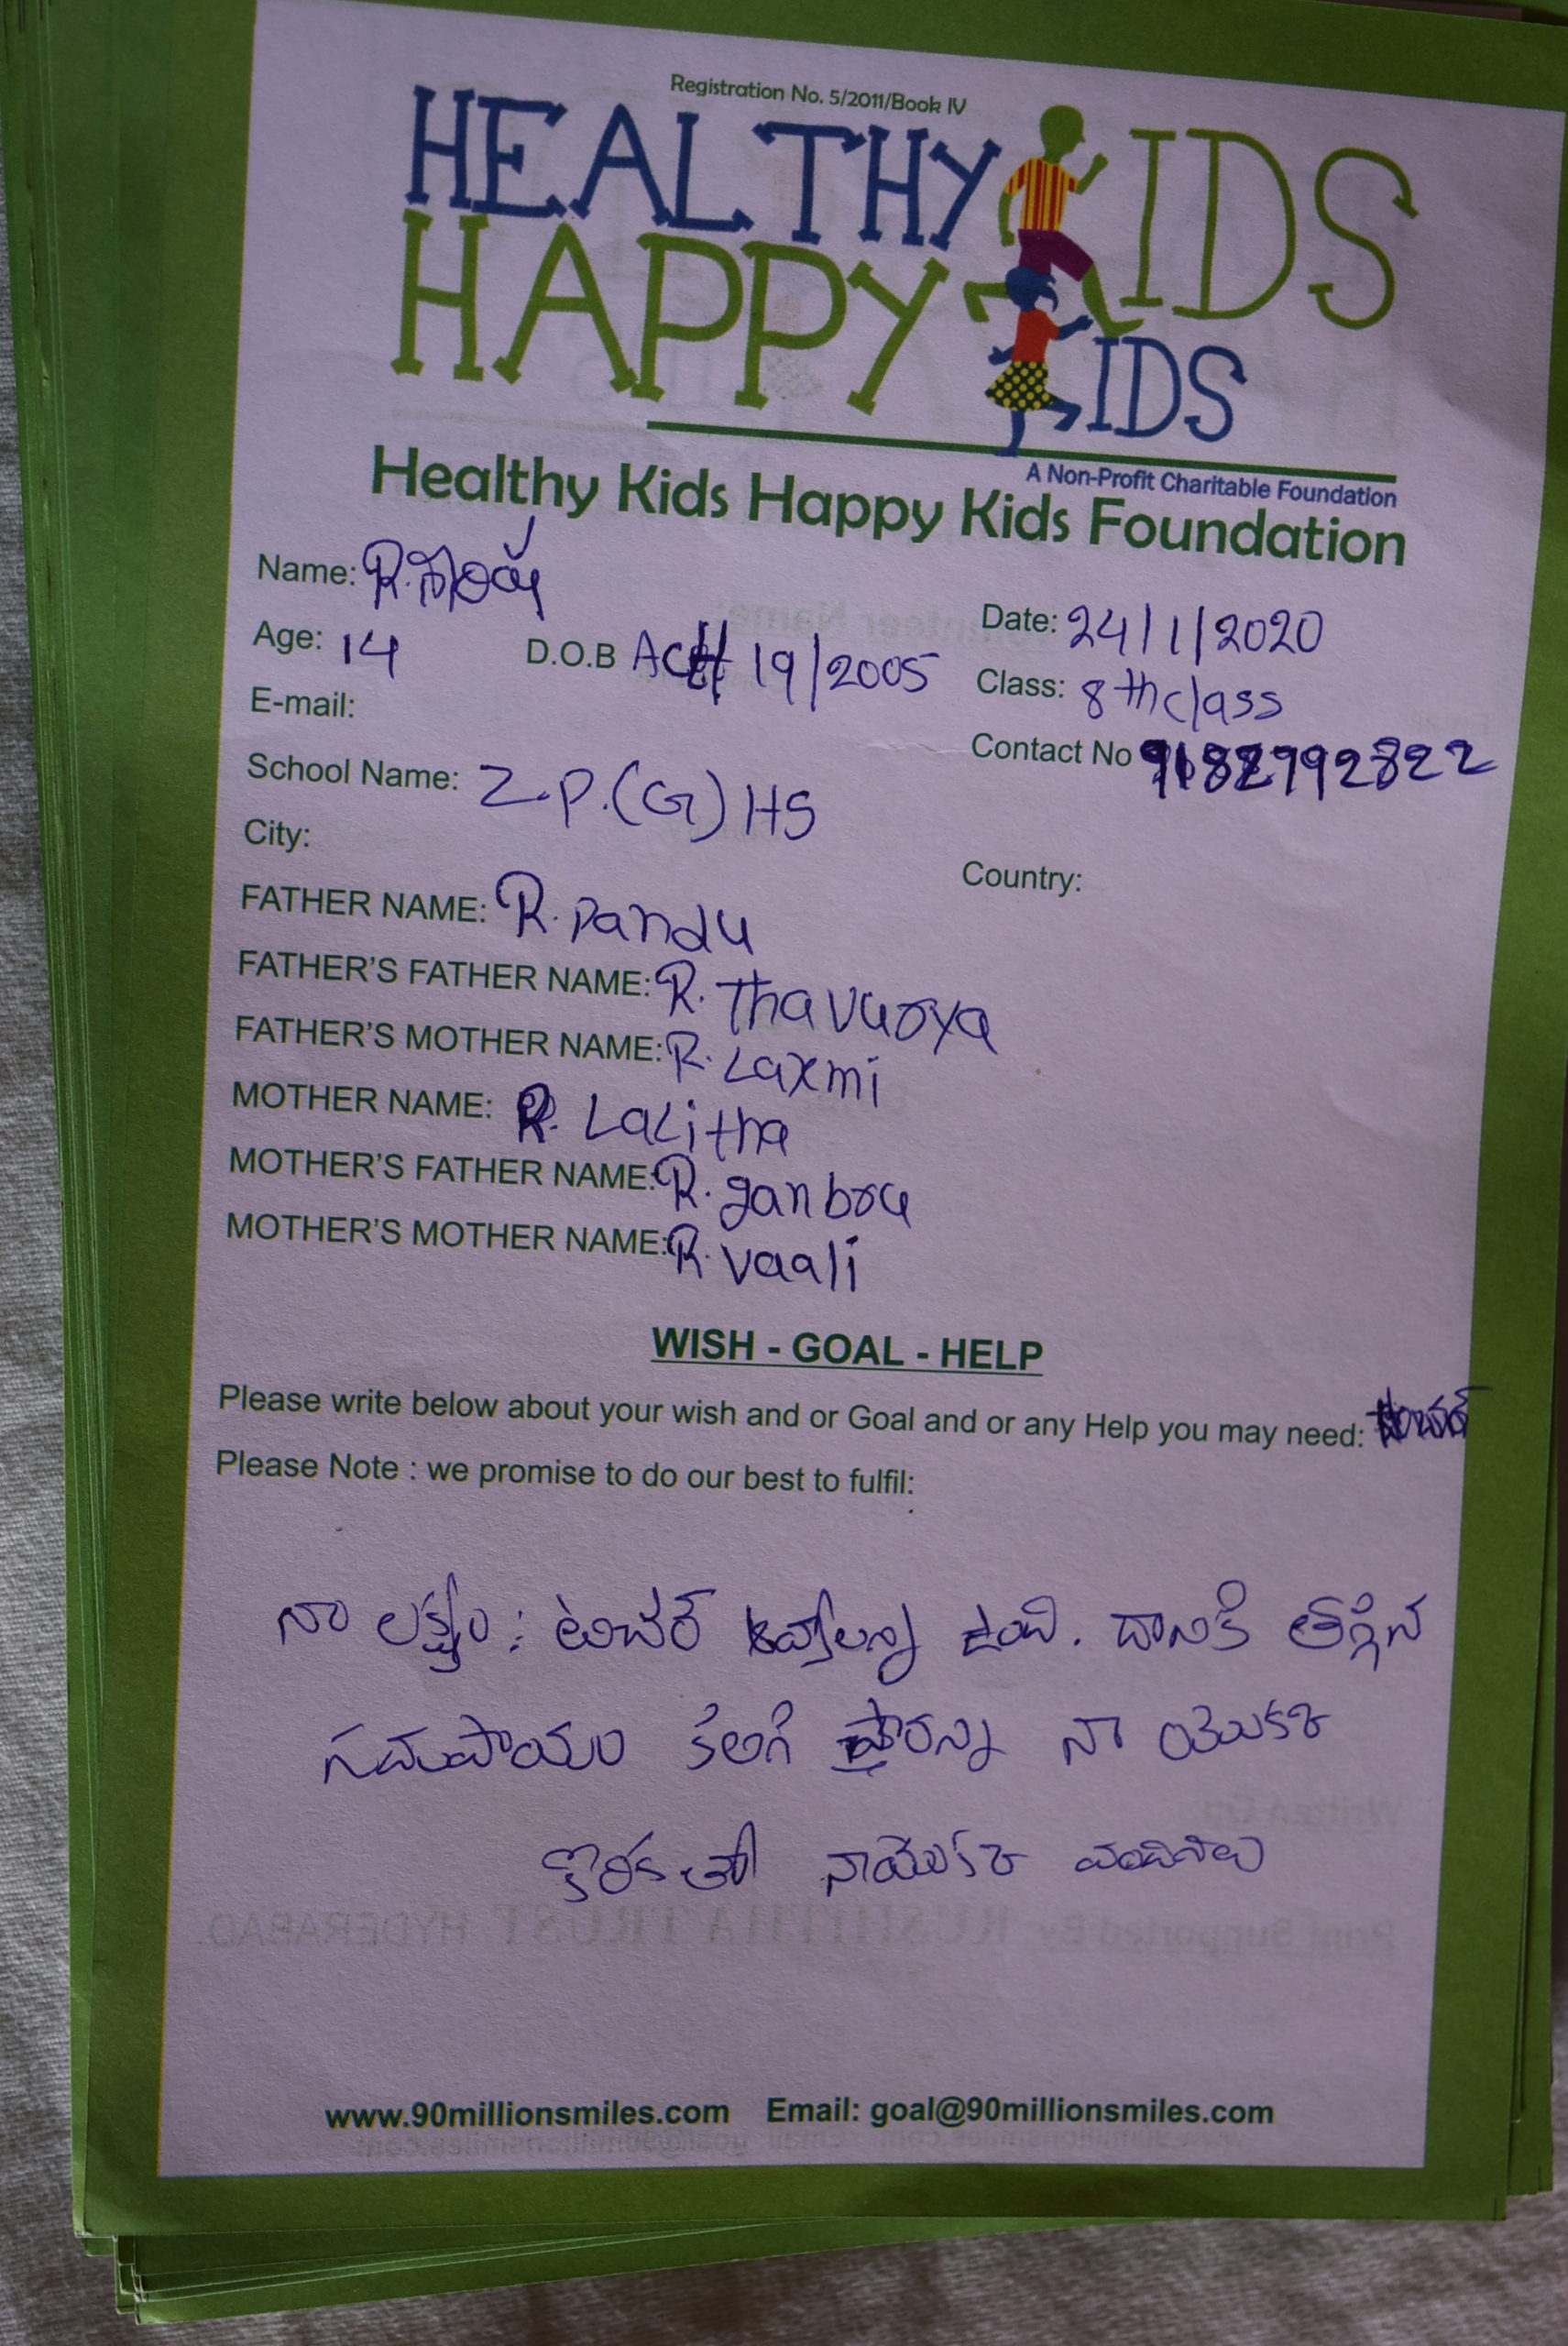 Registration No. 5/2011/Book IV
HEALTHY KIDS
HAPPY KIDS
A Non-Profit Charitable Foundation
Healthy Kids Happy Kids Foundation
Name: R.
Date: 24/1/2020
Age: 14 D.O.B 19/2005
Class: 8th class
E-mail:
Contact No 9182992822
School Name: Z.P.(G) HS
City:
Country:
FATHER NAME: R. Pandu
FATHER'S FATHER NAME: R.
FATHER'S MOTHER NAME: R. Laxmi
MOTHER NAME: R. Lalitha
MOTHER'S FATHER NAME: R.
MOTHER'S MOTHER NAME: R. vaali
WISH - GOAL - HELP
Please write below about your wish and or Goal and or any Help you may need:
Please Note : we promise to do our best to fulfil:
నా లక్ష్యం : టిచర్ కావ్వాలన్ని ఉంది. దానికి తగ్గిన
నా యొకఠ
నాయొకఠ
www.90millionsmiles.com Email: goal@90millionsmiles.com